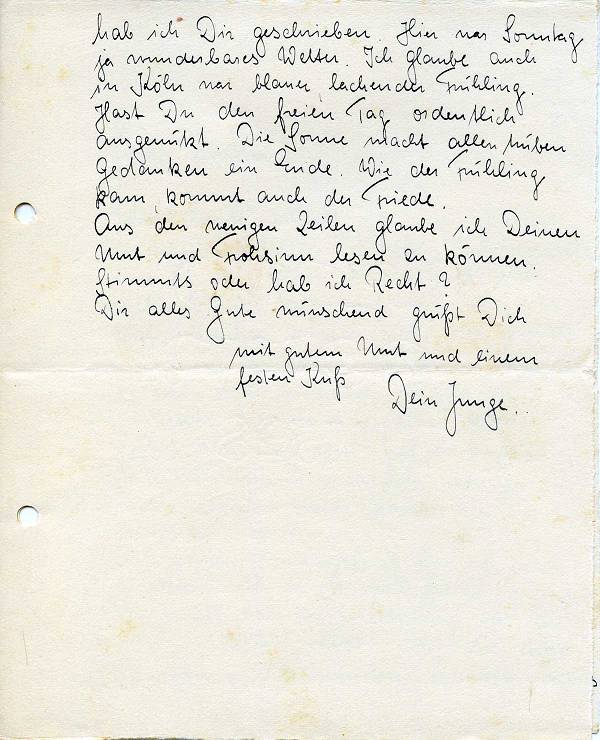 hab ich Dir geschrieben. Hier war Sonntag
ja wunderbares Wetter. Ich glaube auch
in Köln war blauer, lachender Frühling.
Hast Du den freien Tag ordentlich
ausgenützt. Die Sonne macht allen trüben
Gedanken ein Ende. Wie der Frühling
kam, kommt auch der Friede.
Aus den wenigen Zeilen glaube ich Deinen
Mut und Frohsinn lesen zu können.
Stimmts oder hab ich Recht?
Dir alles Gute wünschend grüßt Dich
mit gutem Mut und einem
festen Kuß
Dein Junge..